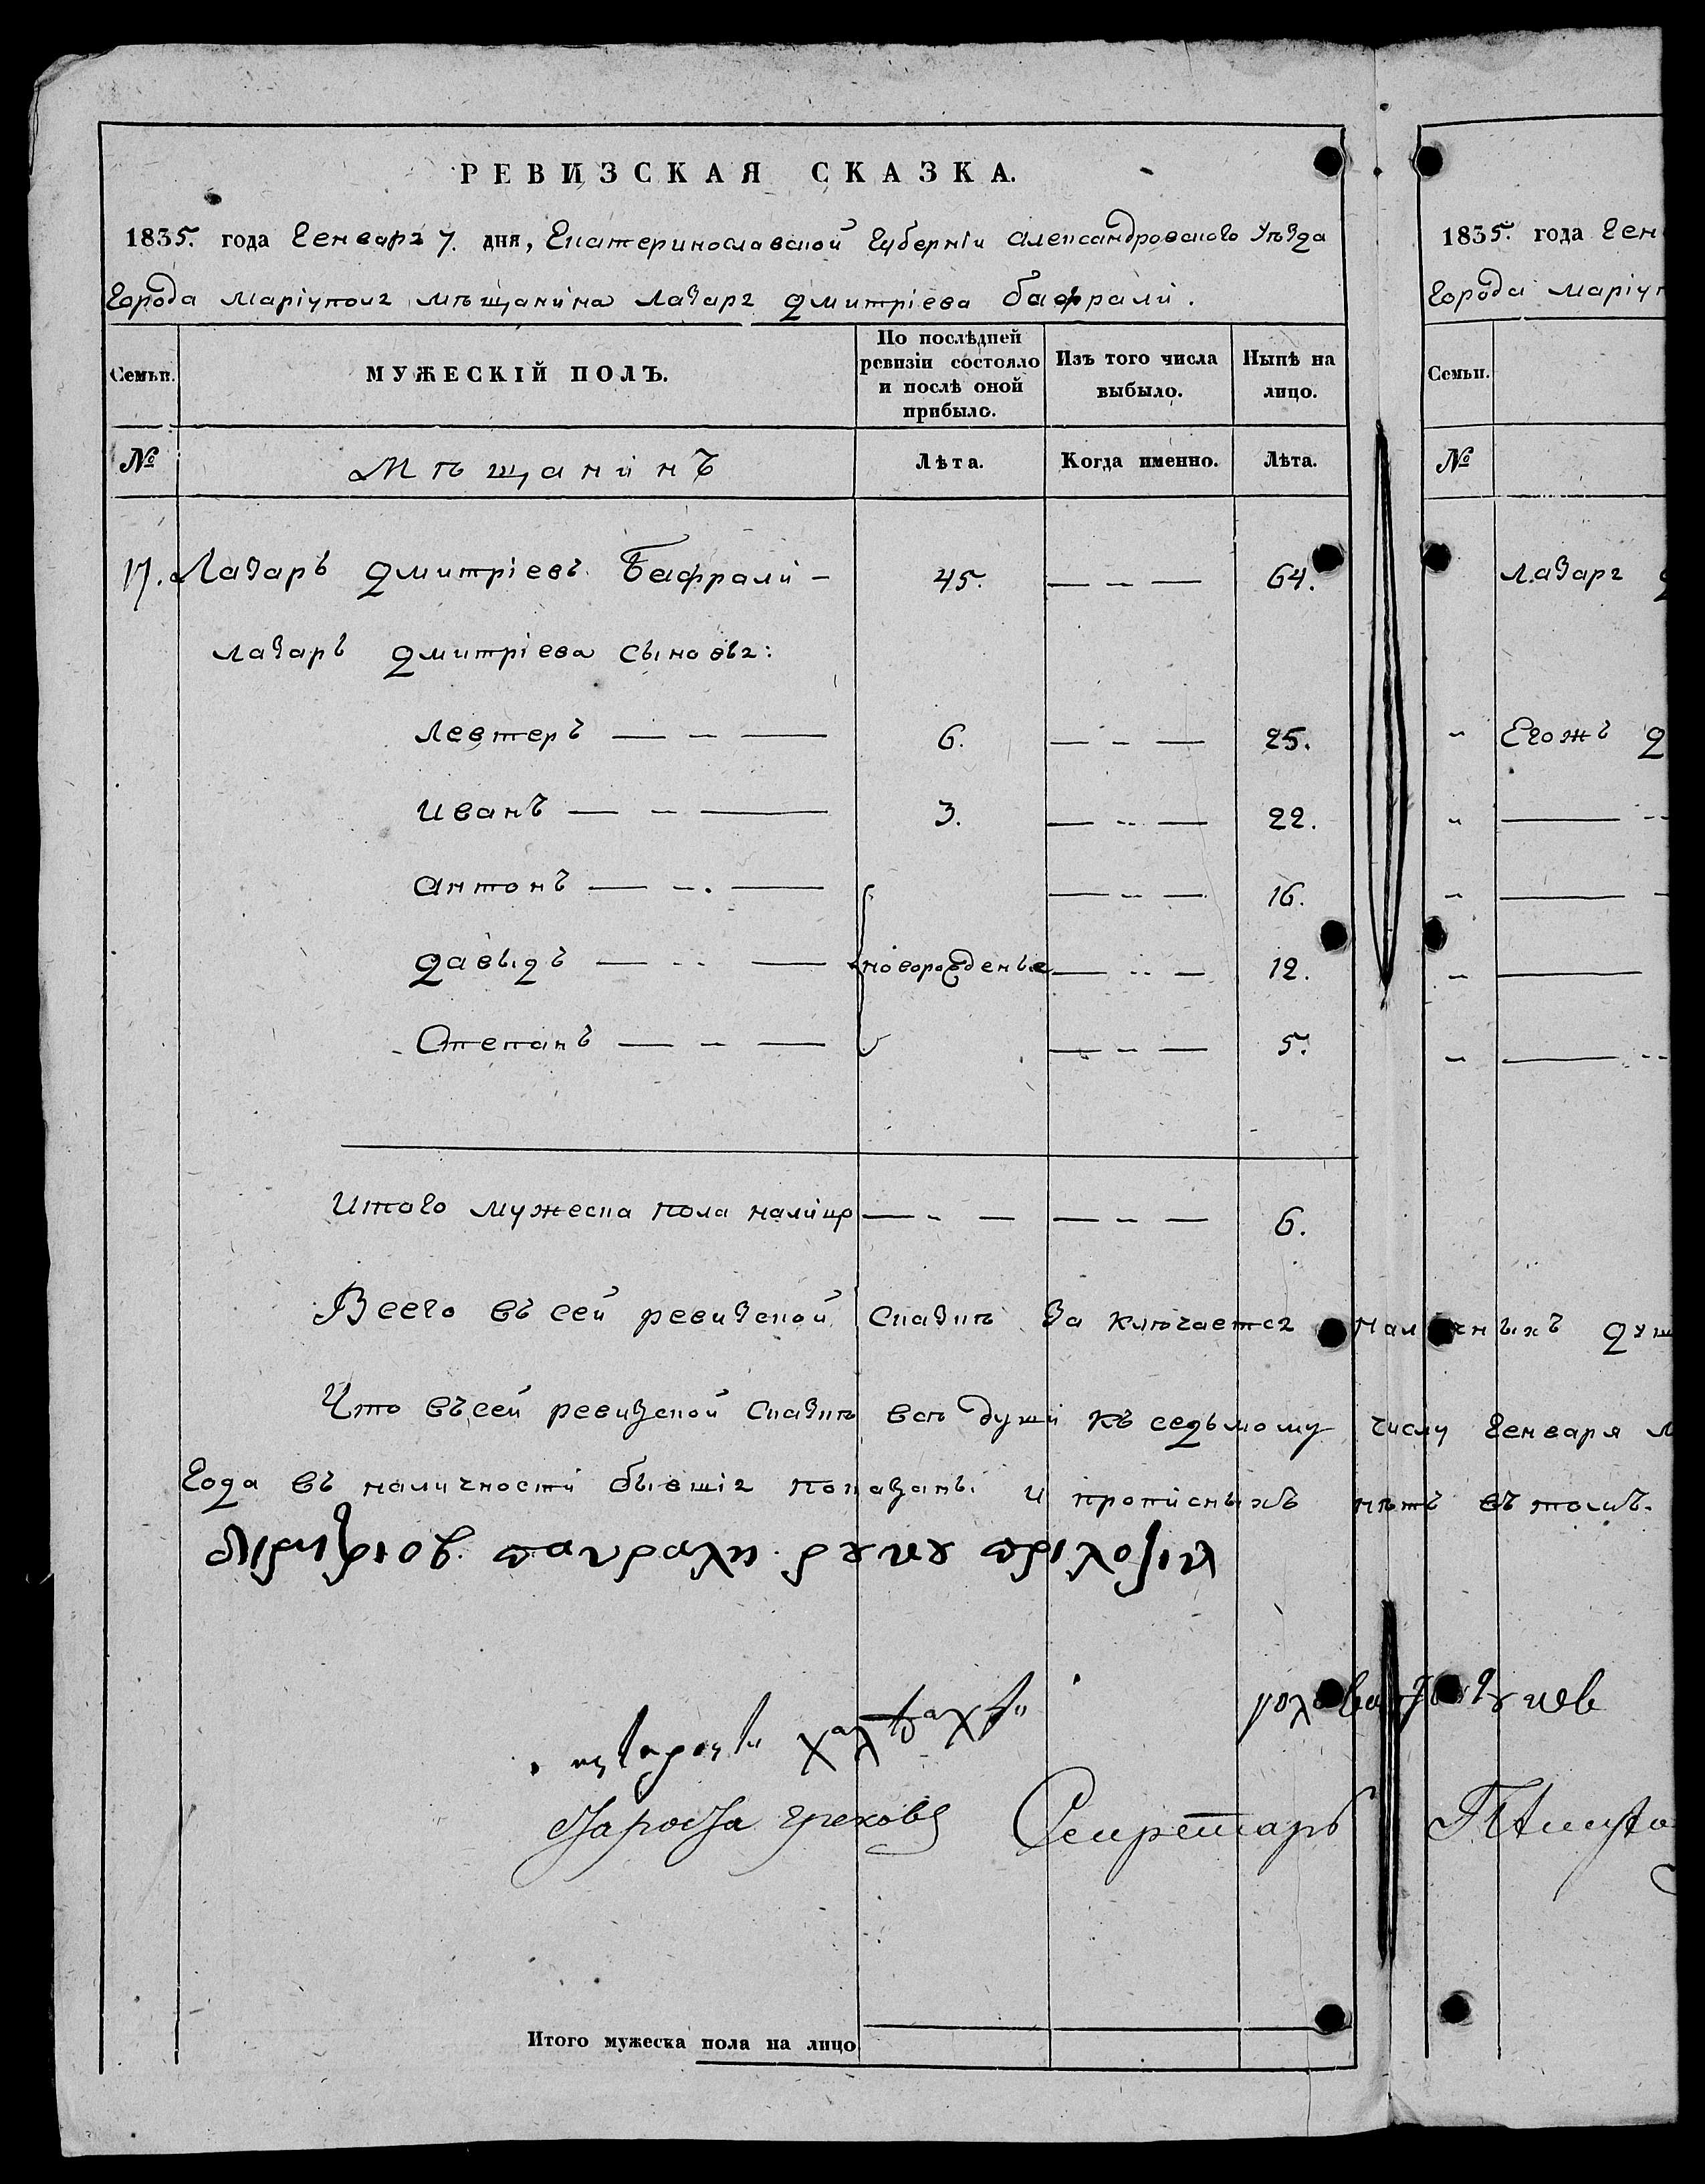 РЕВИЗСКАЯ СКАЗКА.
1835. года Генваря 7. дня, Екатеринославской Губерніи Александровского Уѣзда
Города Маріуполя мѣщанина Лазаря Дмитріева Бафрали.
Семьи.
МУЖЕСКІЙ ПОЛЪ.
По послѣдней ревизіи состояло и послѣ оной прибыло.
Изъ того числа выбыло.
Нынѣ на лицо.
№ Мѣщанинъ Лѣта. Когда именно. Лѣта.
17. Лазарь Дмитріевъ Бафрали - 45. — - — 64.
Лазаря Дмитріева сыновья:
Левтеръ — - — 6. — - — 25.
Иванъ — - — 3. — - — 22.
Антонъ — - — — - — 16.
Давыдъ — - — новорожденые — - — 12.
Степанъ — - — — - — 5.
Итого мужеска пола налицо — - — — - — 6.
Всего въ сей ревизской сказкѣ заключается наличныхъ душ
Что въ сей ревизской сказкѣ всѣ души къ седьмому числу Генваря
Года въ наличности бывшія показаны и прописныхъ нѣтъ въ томъ.
παυραλη ρυκυ πριλοζιλ
χαλτζαχτη
Староста Греховъ Секретарь
Итого мужеска пола на лицо
1835. года Ген
Города Маріуп
Семьи.
№
Лазаря
" Егожъ